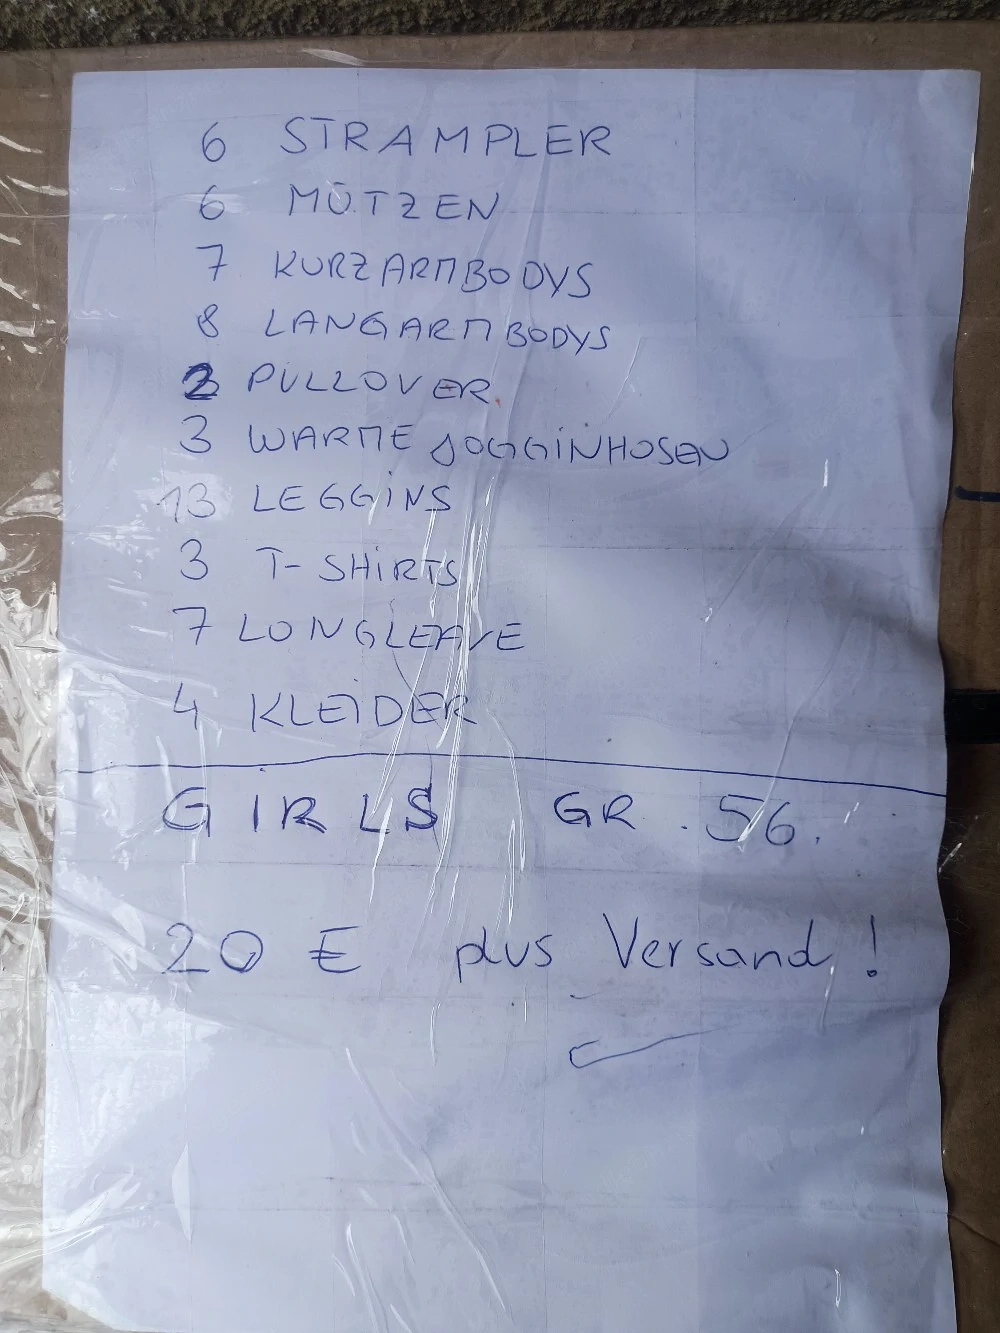 6 STRAMPLER
6 MÜTZEN
7 KURZARMBODYS
8 LANGARMBODYS
2 PULLOVER
3 WARME JOGGINHOSEN
13 LEGGiNS
3 T-SHiRTS
7 LONGLEAVE
4 KLEiDER
GiRLS GR. 56.
20 € plus Versand!